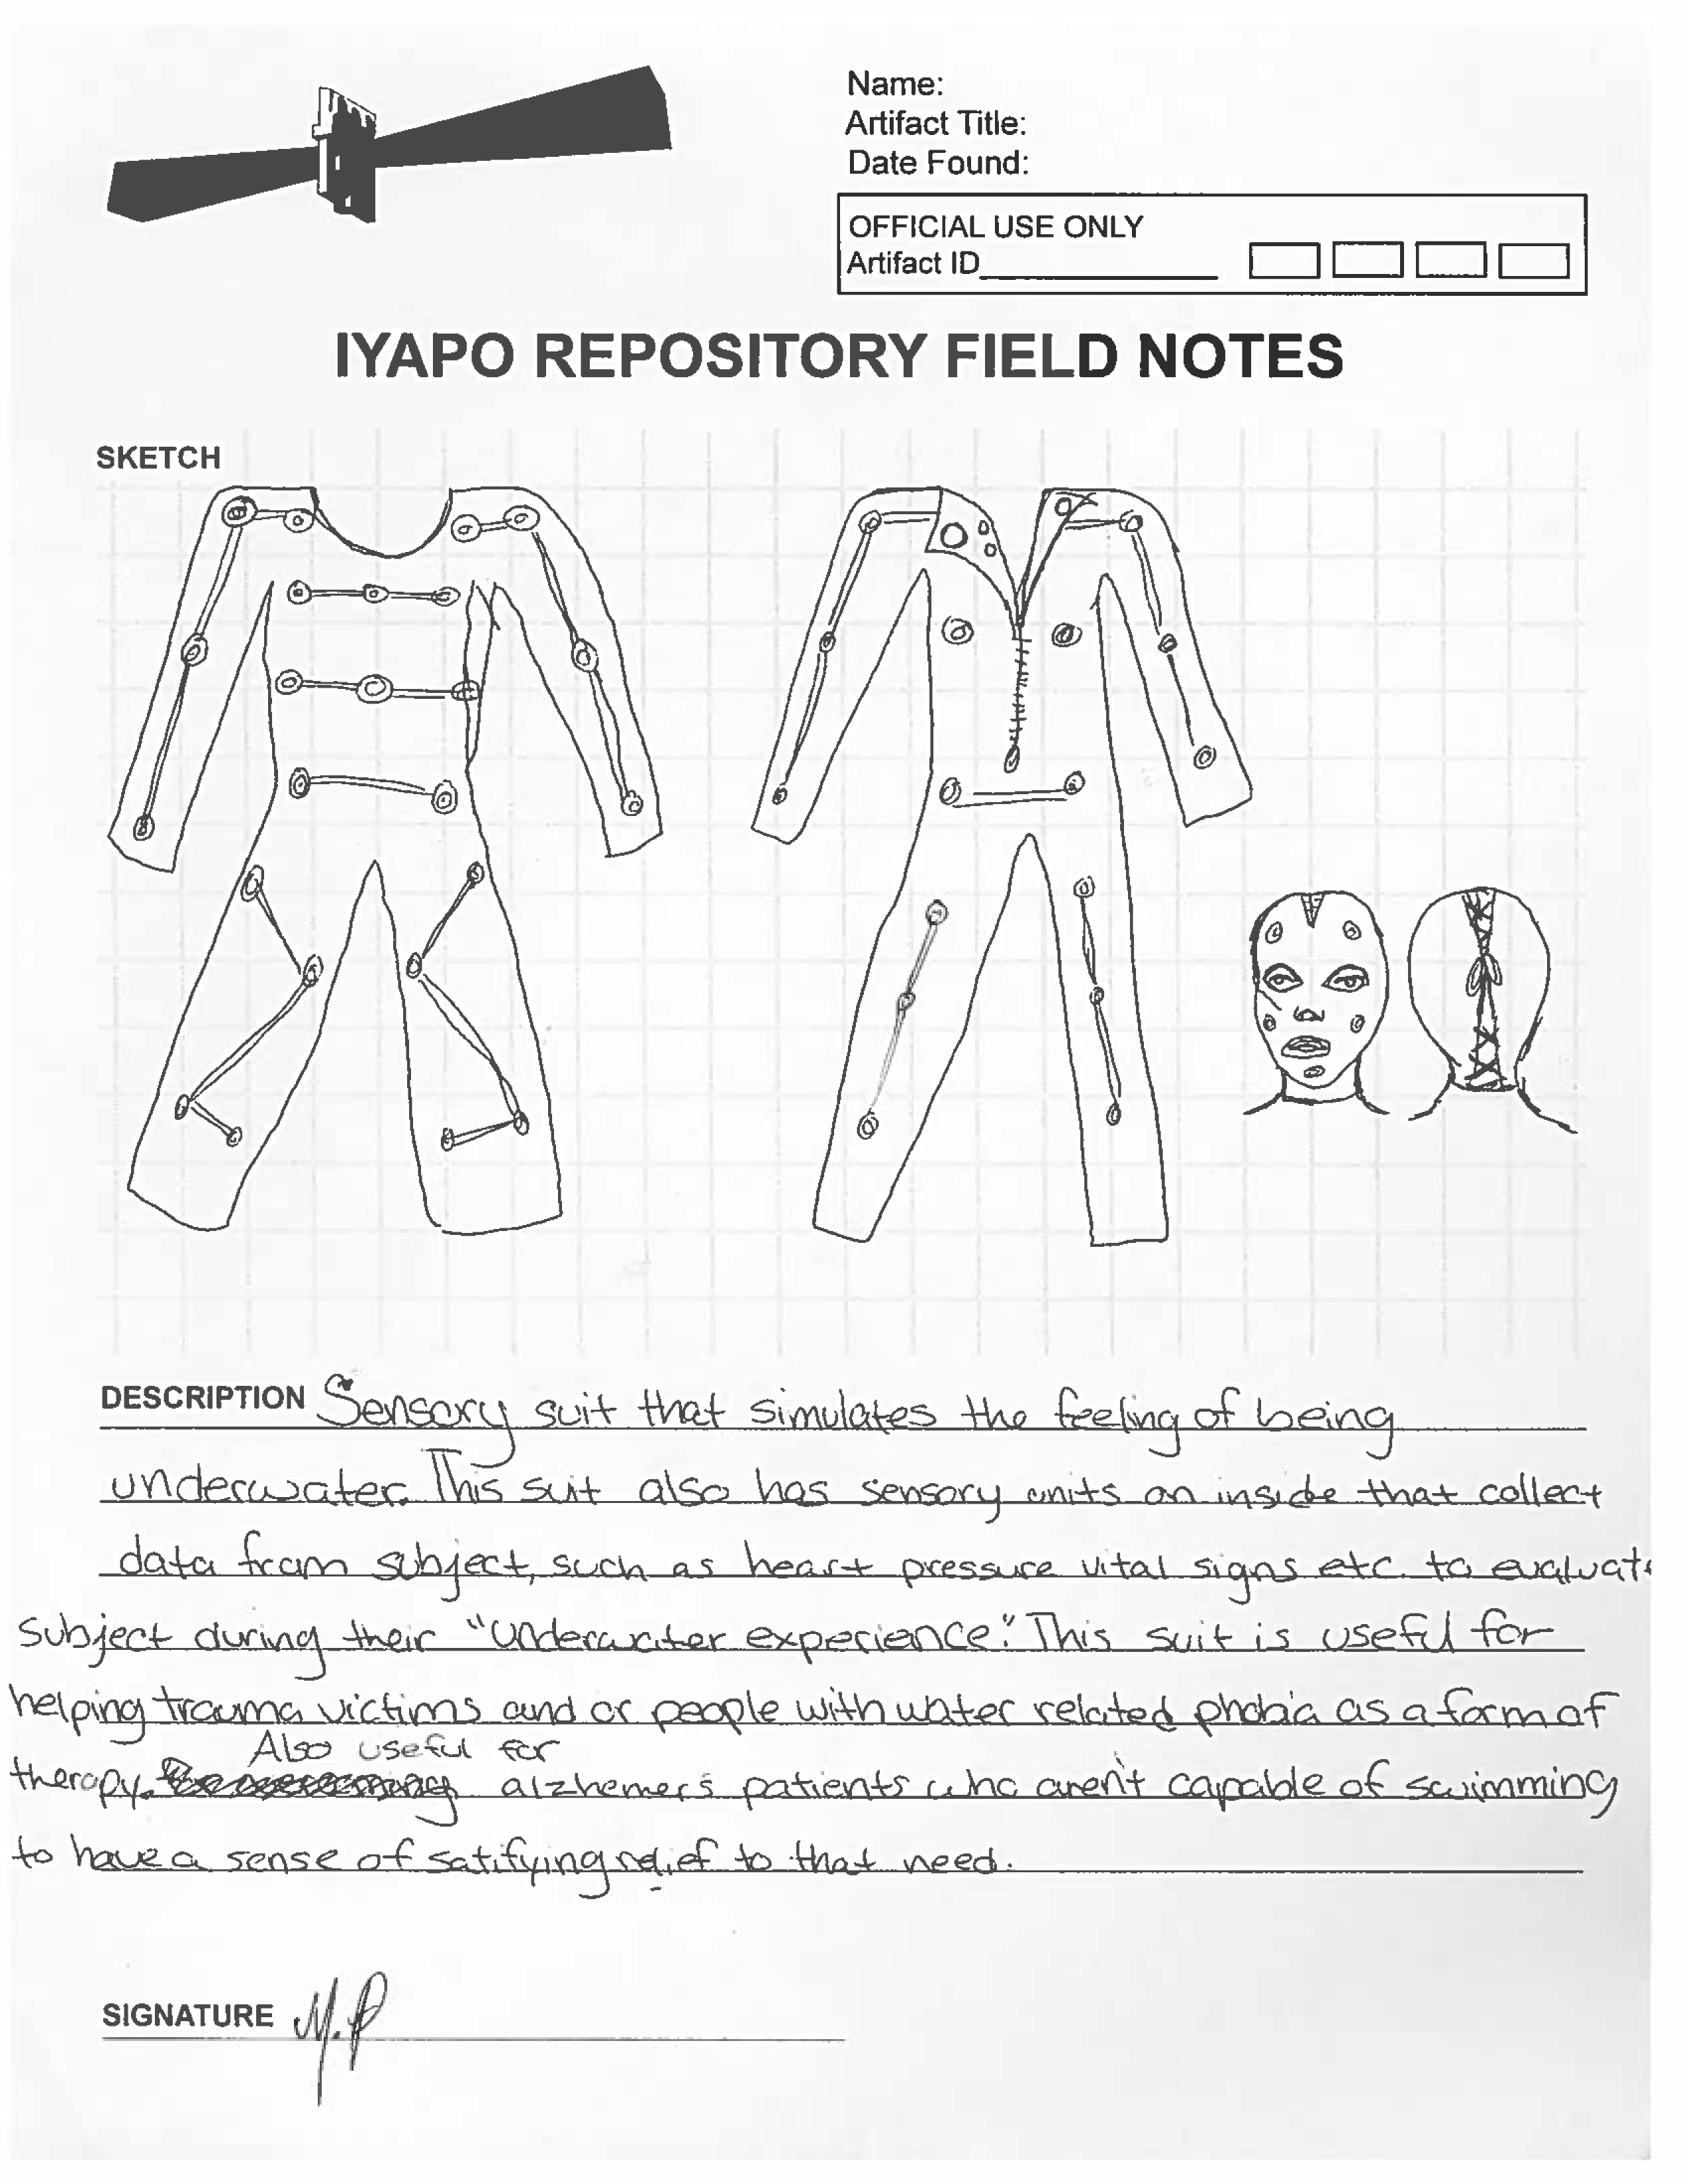 Name:
Artifact Title:
Date Found:
OFFICIAL USE ONLY
Artifact ID
IYAPO REPOSITORY FIELD NOTES
SKETCH
DESCRIPTION Sensory suit that simulates the feeling of being
underwater. This suit also has sensory units on inside that collect
data from subject, such as heart pressure vital signs etc. to evaluate
subject during their "underwater experience." This suit is useful for
helping trauma victims and or people with water related phobia as a form of
Also useful for
therapy. alzhemer's patients who aren't capable of swimming
to have a sense of satifying relief to that need.
SIGNATURE M.P